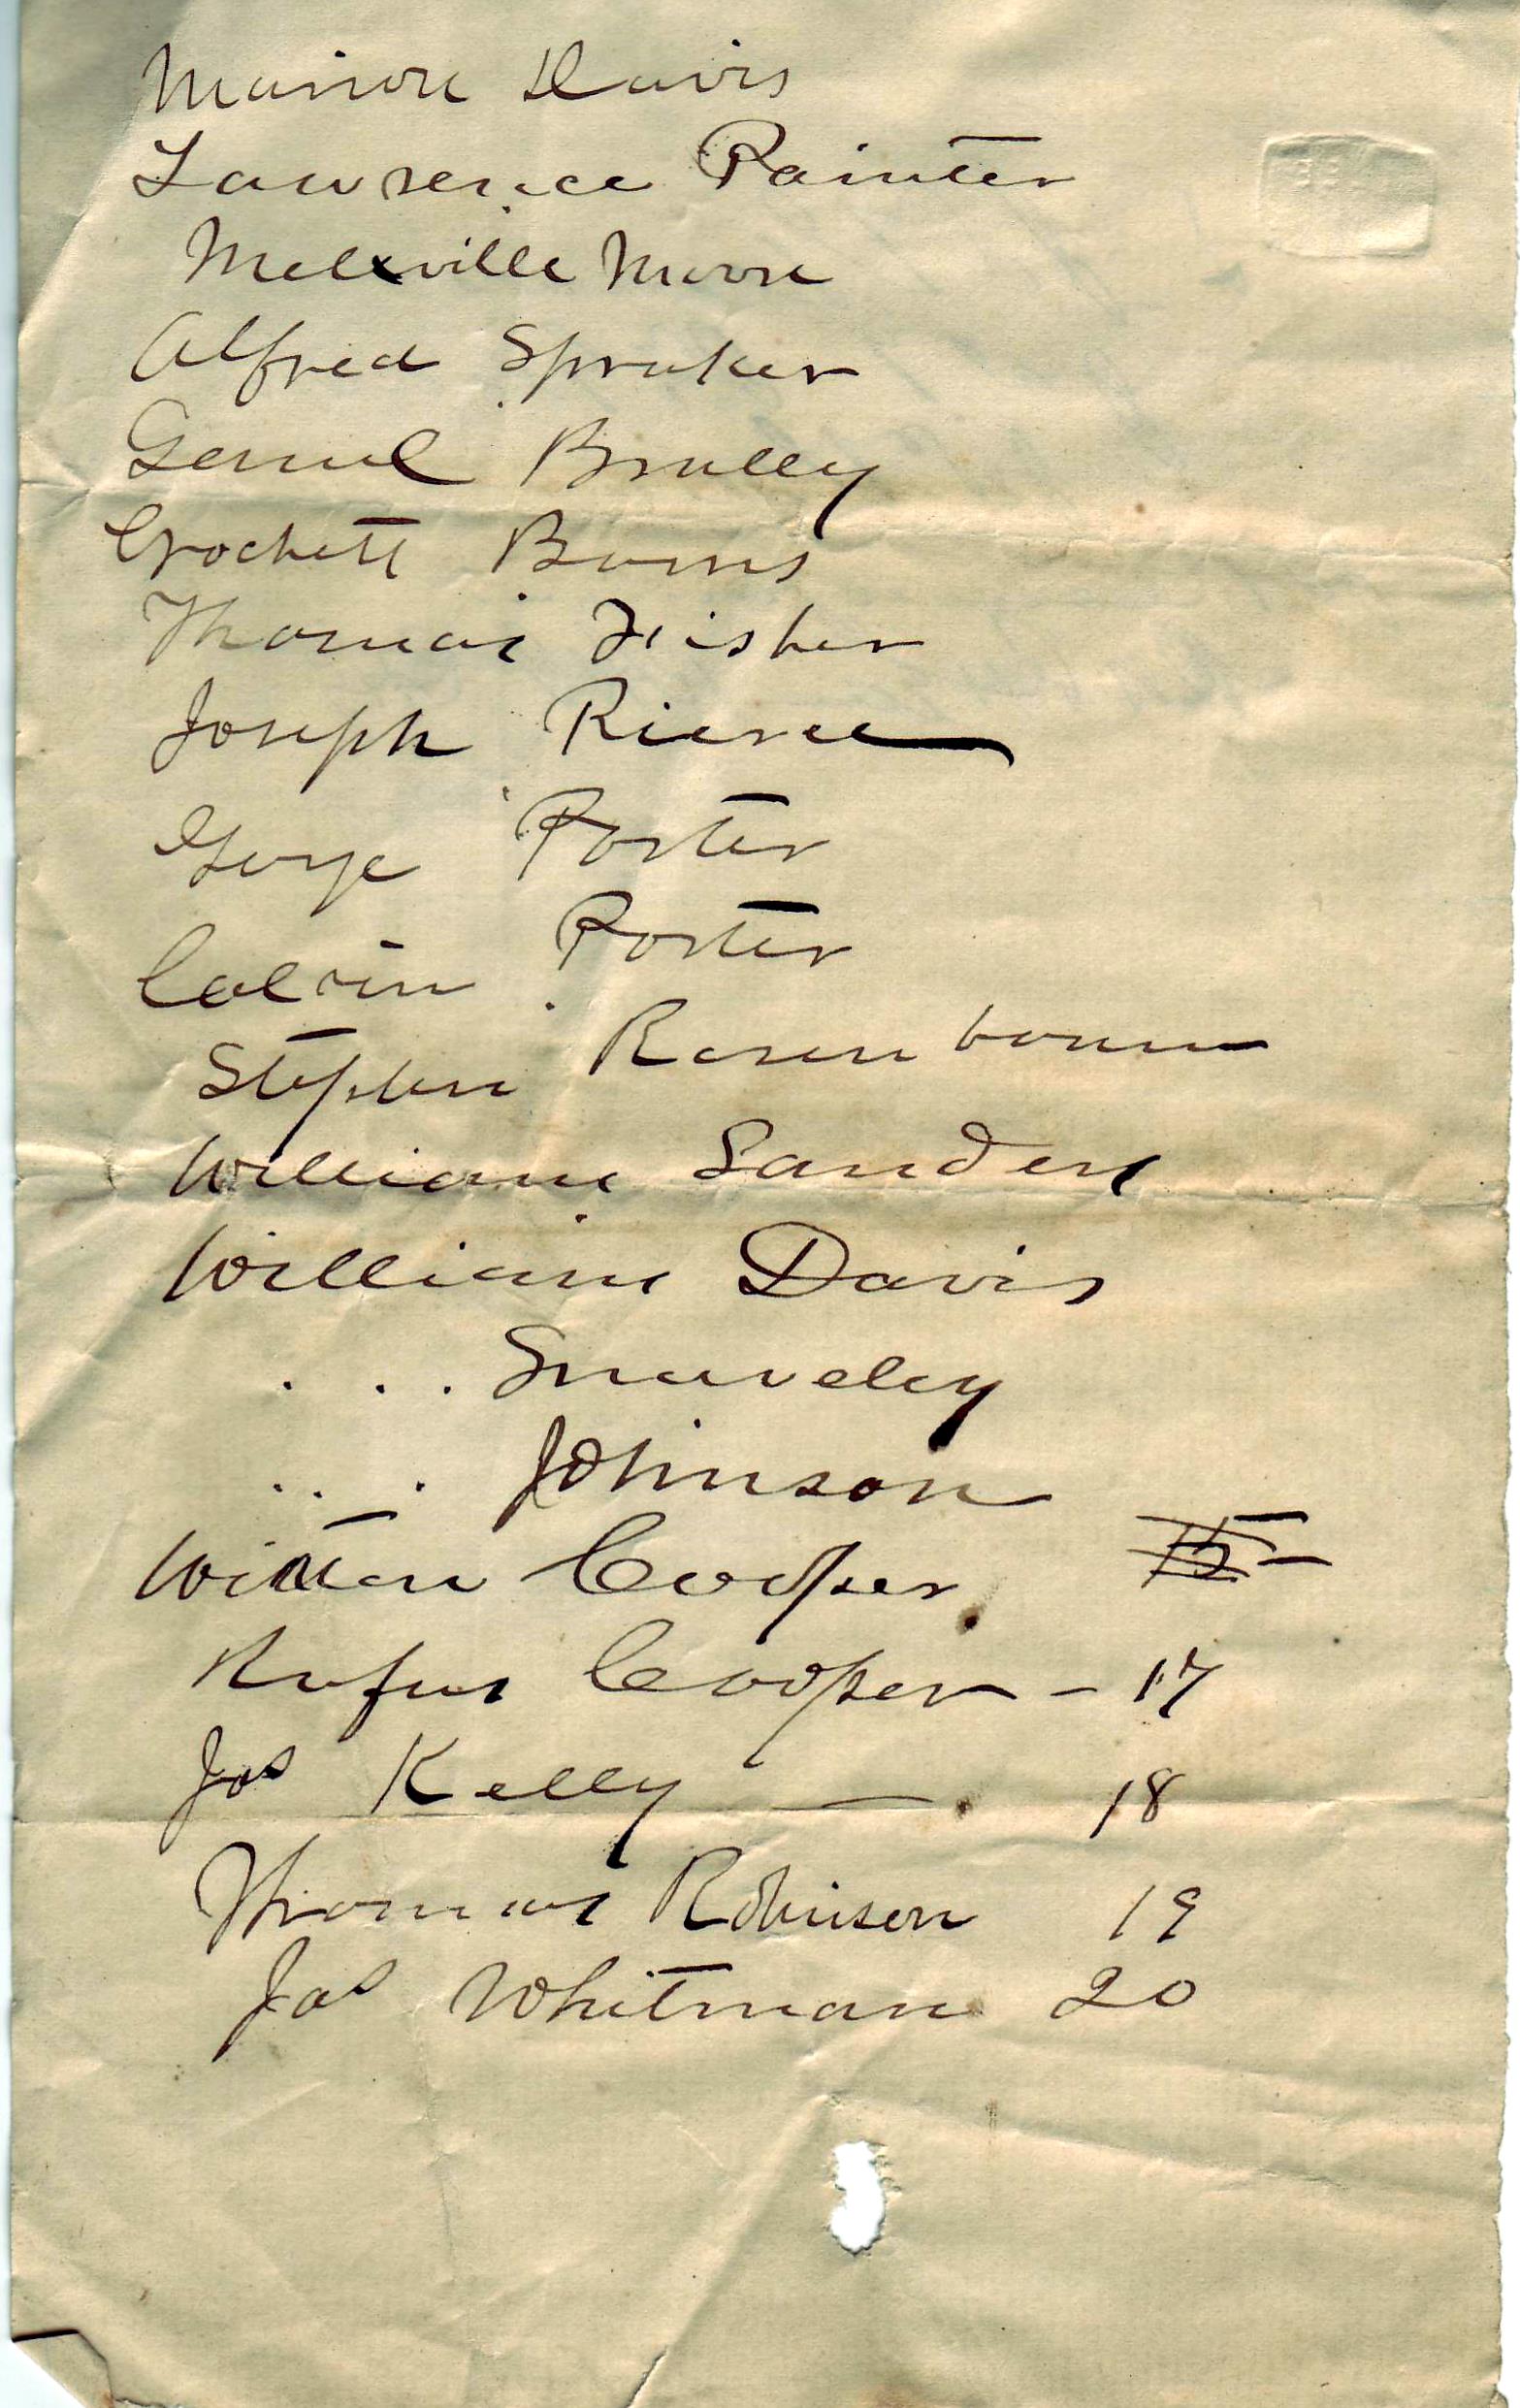 Marion Davis
Lawrence Painter
Melville Moore
Alfred Spraker
Gernul Bralley
Crochett Burns
Thomas Fisher
Joseph Pierce
George Porter
Calvin Porter
Stephen Rosenbaum
William Sanders
William Davis
. . . Snavely
. . . Johnson
Witten Cooper 15 —
Rufus Cooper - 17
Jas Kelly — 18
Thomas Robinson 19
Jas Whitman 20